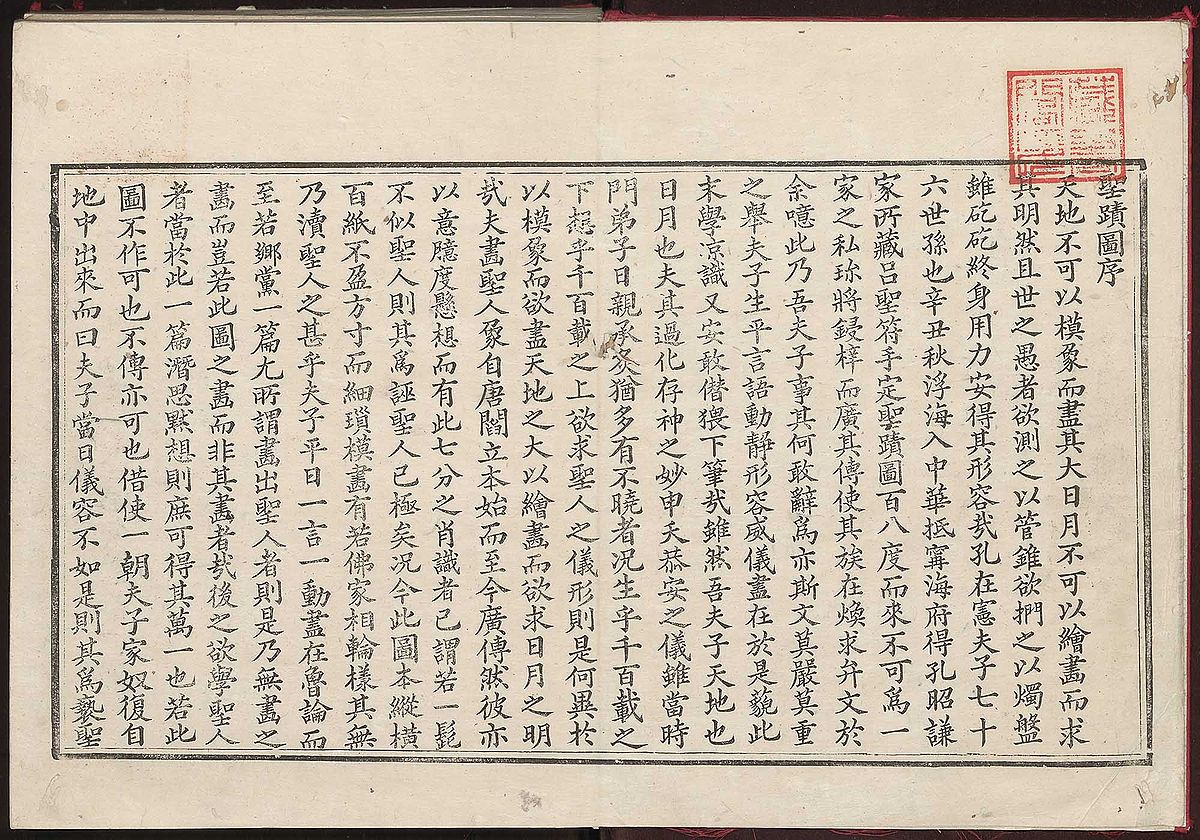 聖蹟圖序
天地不可以模象而盡其大日月不可以繪畫而求
其明然且世之愚者欲測之以管錐欲捫之以燭盤
雖矻矻終身用力安得其形容㦲孔在憲夫子七十
六世孫也辛丑秋浮海入中華抵甯海府得孔昭謙
家所藏呂聖符手定聖蹟圖百八度而來不可爲一
家之私珎將鋟梓而廣其傳使其族在煥求弁文於
余噫此乃吾夫子事其何敢辭爲亦斯文莫嚴莫重
之舉夫子生平言語動靜形容威儀盡在於是藐此
末學凉識又安敢僭猥下筆㦲雖然吾夫子天地也
日月也夫其過化存神之妙申夭恭安之儀雖當時
門弟子日親承炙猶多有不曉者况生乎千百載之
下想乎千百載之上欲求聖人之儀形則是何異於
以模象而欲盡天地之大以繪畫而欲求日月之明
㦲夫畵聖人象自唐閻立本始而至今廣傳然彼亦
以意臆度懸想而有此七分之肖識者已謂若一髭
不似聖人則其爲誣聖人已極矣况今此圖本縱橫
百紙不盈方寸而細瑣模畵有若佛家相輪樣其無
乃瀆聖人之甚乎夫子平日一言一動盡在魯論而
至若鄉黨一篇尤所謂畵出聖人者則是乃無畵之
畵而豈若此圖之畵而非其畵者㦲後之欲學聖人
者當於此一篇潛思默想則庶可得其萬一也若此
圖不作可也不傳亦可也借使一朝夫子家奴復自
地中出來而曰夫子當日儀容不如是則其爲褻聖